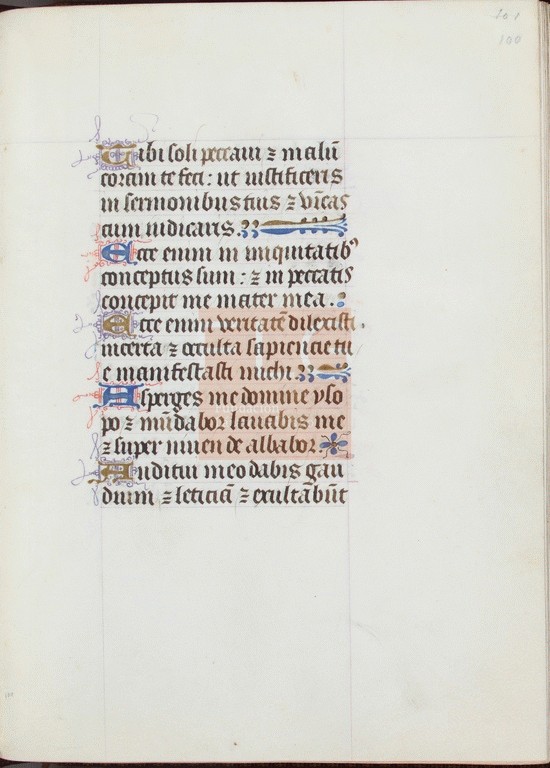 201
100
Tibi soli peccaui ⁊ malū
coram te feci: ut iustificeris
in sermonibus tuis ⁊ vīcas
cum iudicaris.
Ecce enim in iniquitatib⁹
conceptus sum: ⁊ in peccatis
concepit me mater mea.
Ecce enim veritatē dilexisti.
incerta ⁊ occulta sapiencie tu
e manifestasti michi.
Asperges me domine yso
po ⁊ mūdabor lauabis me
⁊ super niuem de albabor.
Auditui meo dabis gau
dium ⁊ leticiā ⁊ exultabūt